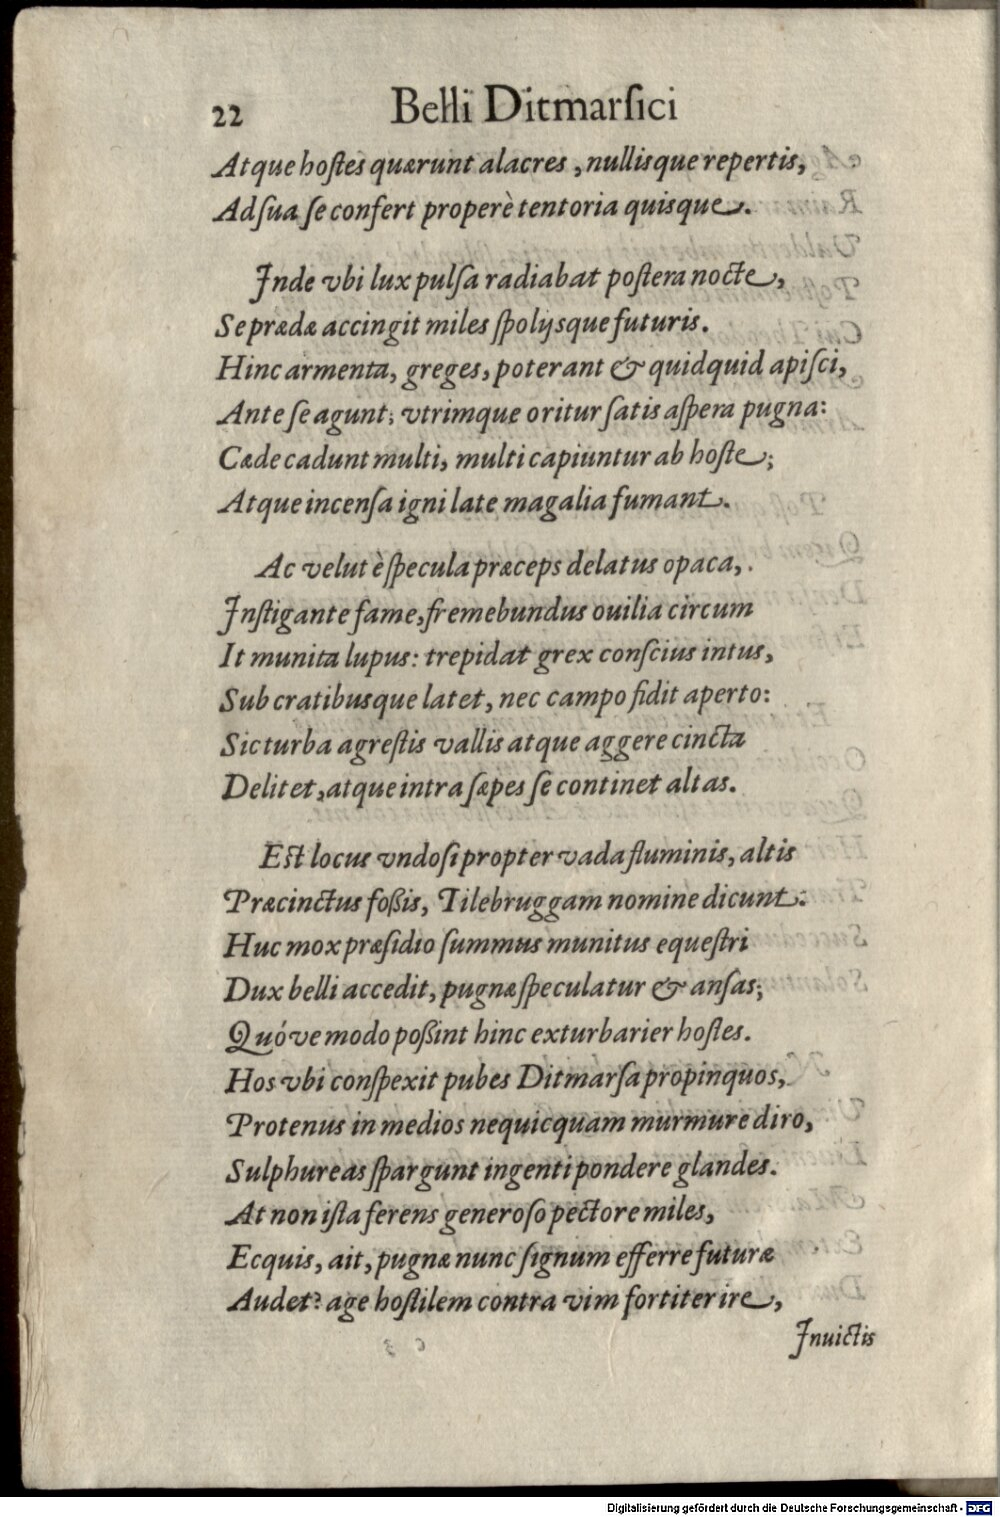 22 Belli Ditmarſici
Atque hoſtes quærunt alacres, nullisque repertis,
Ad ſua ſe confert properè tentoria quisque.
Inde vbi lux pulſa radiabat poſtera nocte,
Se prædæ accingit miles ſpolijsque futuris.
Hinc armenta, greges, poterant & quidquid apiſci,
Ante ſe agunt; vtrimque oritur ſatis aſpera pugna:
Cæde cadunt multi, multi capiuntur ab hoſte;
Atque incenſa igni late magalia fumant.
Ac velut è ſpecula præceps delatus opaca,.
Inſtigante fame, fremebundus ouilia circum
It munita lupus: trepidat grex conſcius intus,
Sub cratibusque latet, nec campo fidit aperto:
Sic turba agreſtis vallis atque aggere cincta
Delitet, atque intra ſæpes ſe continet altas.
Eſt locus vndoſi propter vada fluminis, altis
Præcinctus foßis, Tilebruggam nomine dicunt:
Huc mox præſidio ſummus munitus equeſtri
Dux belli accedit, pugnæ ſpeculatur & anſas;
Quóve modo poßint hinc exturbarier hoſtes.
Hos vbi conſpexit pubes Ditmarſa propinquos,
Protenus in medios nequicquam murmure diro,
Sulphureas ſpargunt ingenti pondere glandes.
At non iſta ferens generoſo pectore miles,
Ecquis, ait, pugnæ nunc ſignum efferre futuræ
Audet? age hoſtilem contra vim fortiter ire,
Inuictis
Digitalisierung gefördert durch die Deutsche Forschungsgemeinschaft - DFG